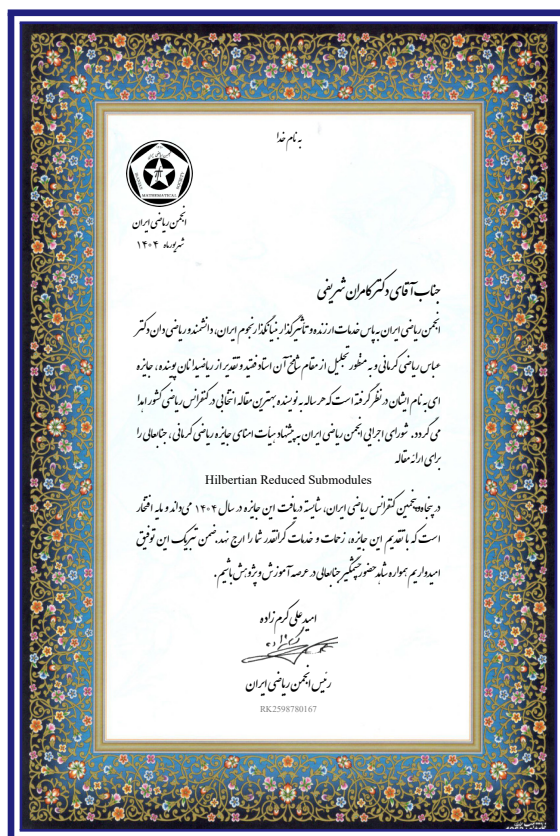 به نام خدا
MATHEMATICAL
انجمن ریاضی ایران
شهریورماه ۱۴۰۴
جناب آقای دکتر کامران شریفی
انجمن ریاضی ایران به پاس خدمات ارزنده و تأثیرگذار بنیانگذار نجوم ایران، دانشمند و ریاضی دان دکتر
عباس ریاضی کرمانی و به منظور تجلیل از مقام شامخ آن استاد فقید و تقدیر از ریاضیدانان پوینده، جایزه
ای به نام ایشان در نظر گرفته است که هر ساله به نویسنده بهترین مقاله انتخابی در کنفرانس ریاضی کشور اهدا
می گردد. شورای اجرایی انجمن ریاضی ایران به پیشنهاد هیأت امنای جایزه ریاضی کرمانی، جنابعالی را
برای ارائه مقاله
Hilbertian Reduced Submodules
در پنجاه و پنجمین کنفرانس ریاضی ایران، شایسته دریافت این جایزه در سال ۱۴۰۴ می‌داند و مایه افتخار
است که با تقدیم این جایزه، زحمات و خدمات گرانقدر شما را ارج نهد. ضمن تبریک این توفیق
امیدواریم همواره شاهد حضور چشمگیر جنابعالی در عرصه آموزش و پژوهش باشیم.
امید علی کرم زاده
رئیس انجمن ریاضی ایران
RK2598780167